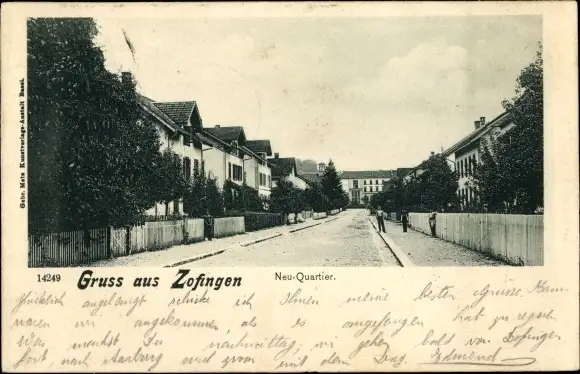 Gebr. Metz Kunstverlags-Anstalt Basel.
14249 Gruss aus Zofingen Neu-Quartier.
glücklich angelangt schicke ich Ihnen meine besten Grüsse. Kaum
waren wir angekommen, als es angefangen hat zu regnen
Was machst Du nachmittag, wir gehen bald von Zofingen
fort, nach Aarburg und zwar mit dem Edmond